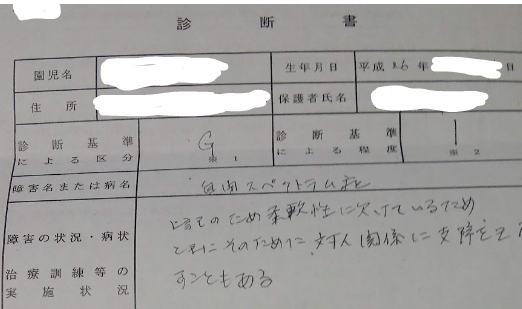 診断書
園児名 生年月日 平成26年 日
住所 保護者氏名
診断基準による区分 G ※1 診断基準による程度 1 ※2
障害名または病名 自閉スペクトラム症
障害の状況・病状 上記のため柔軟性に欠けているため
ときにそのために対人関係に支障をき
治療訓練等の実施状況 すこともある